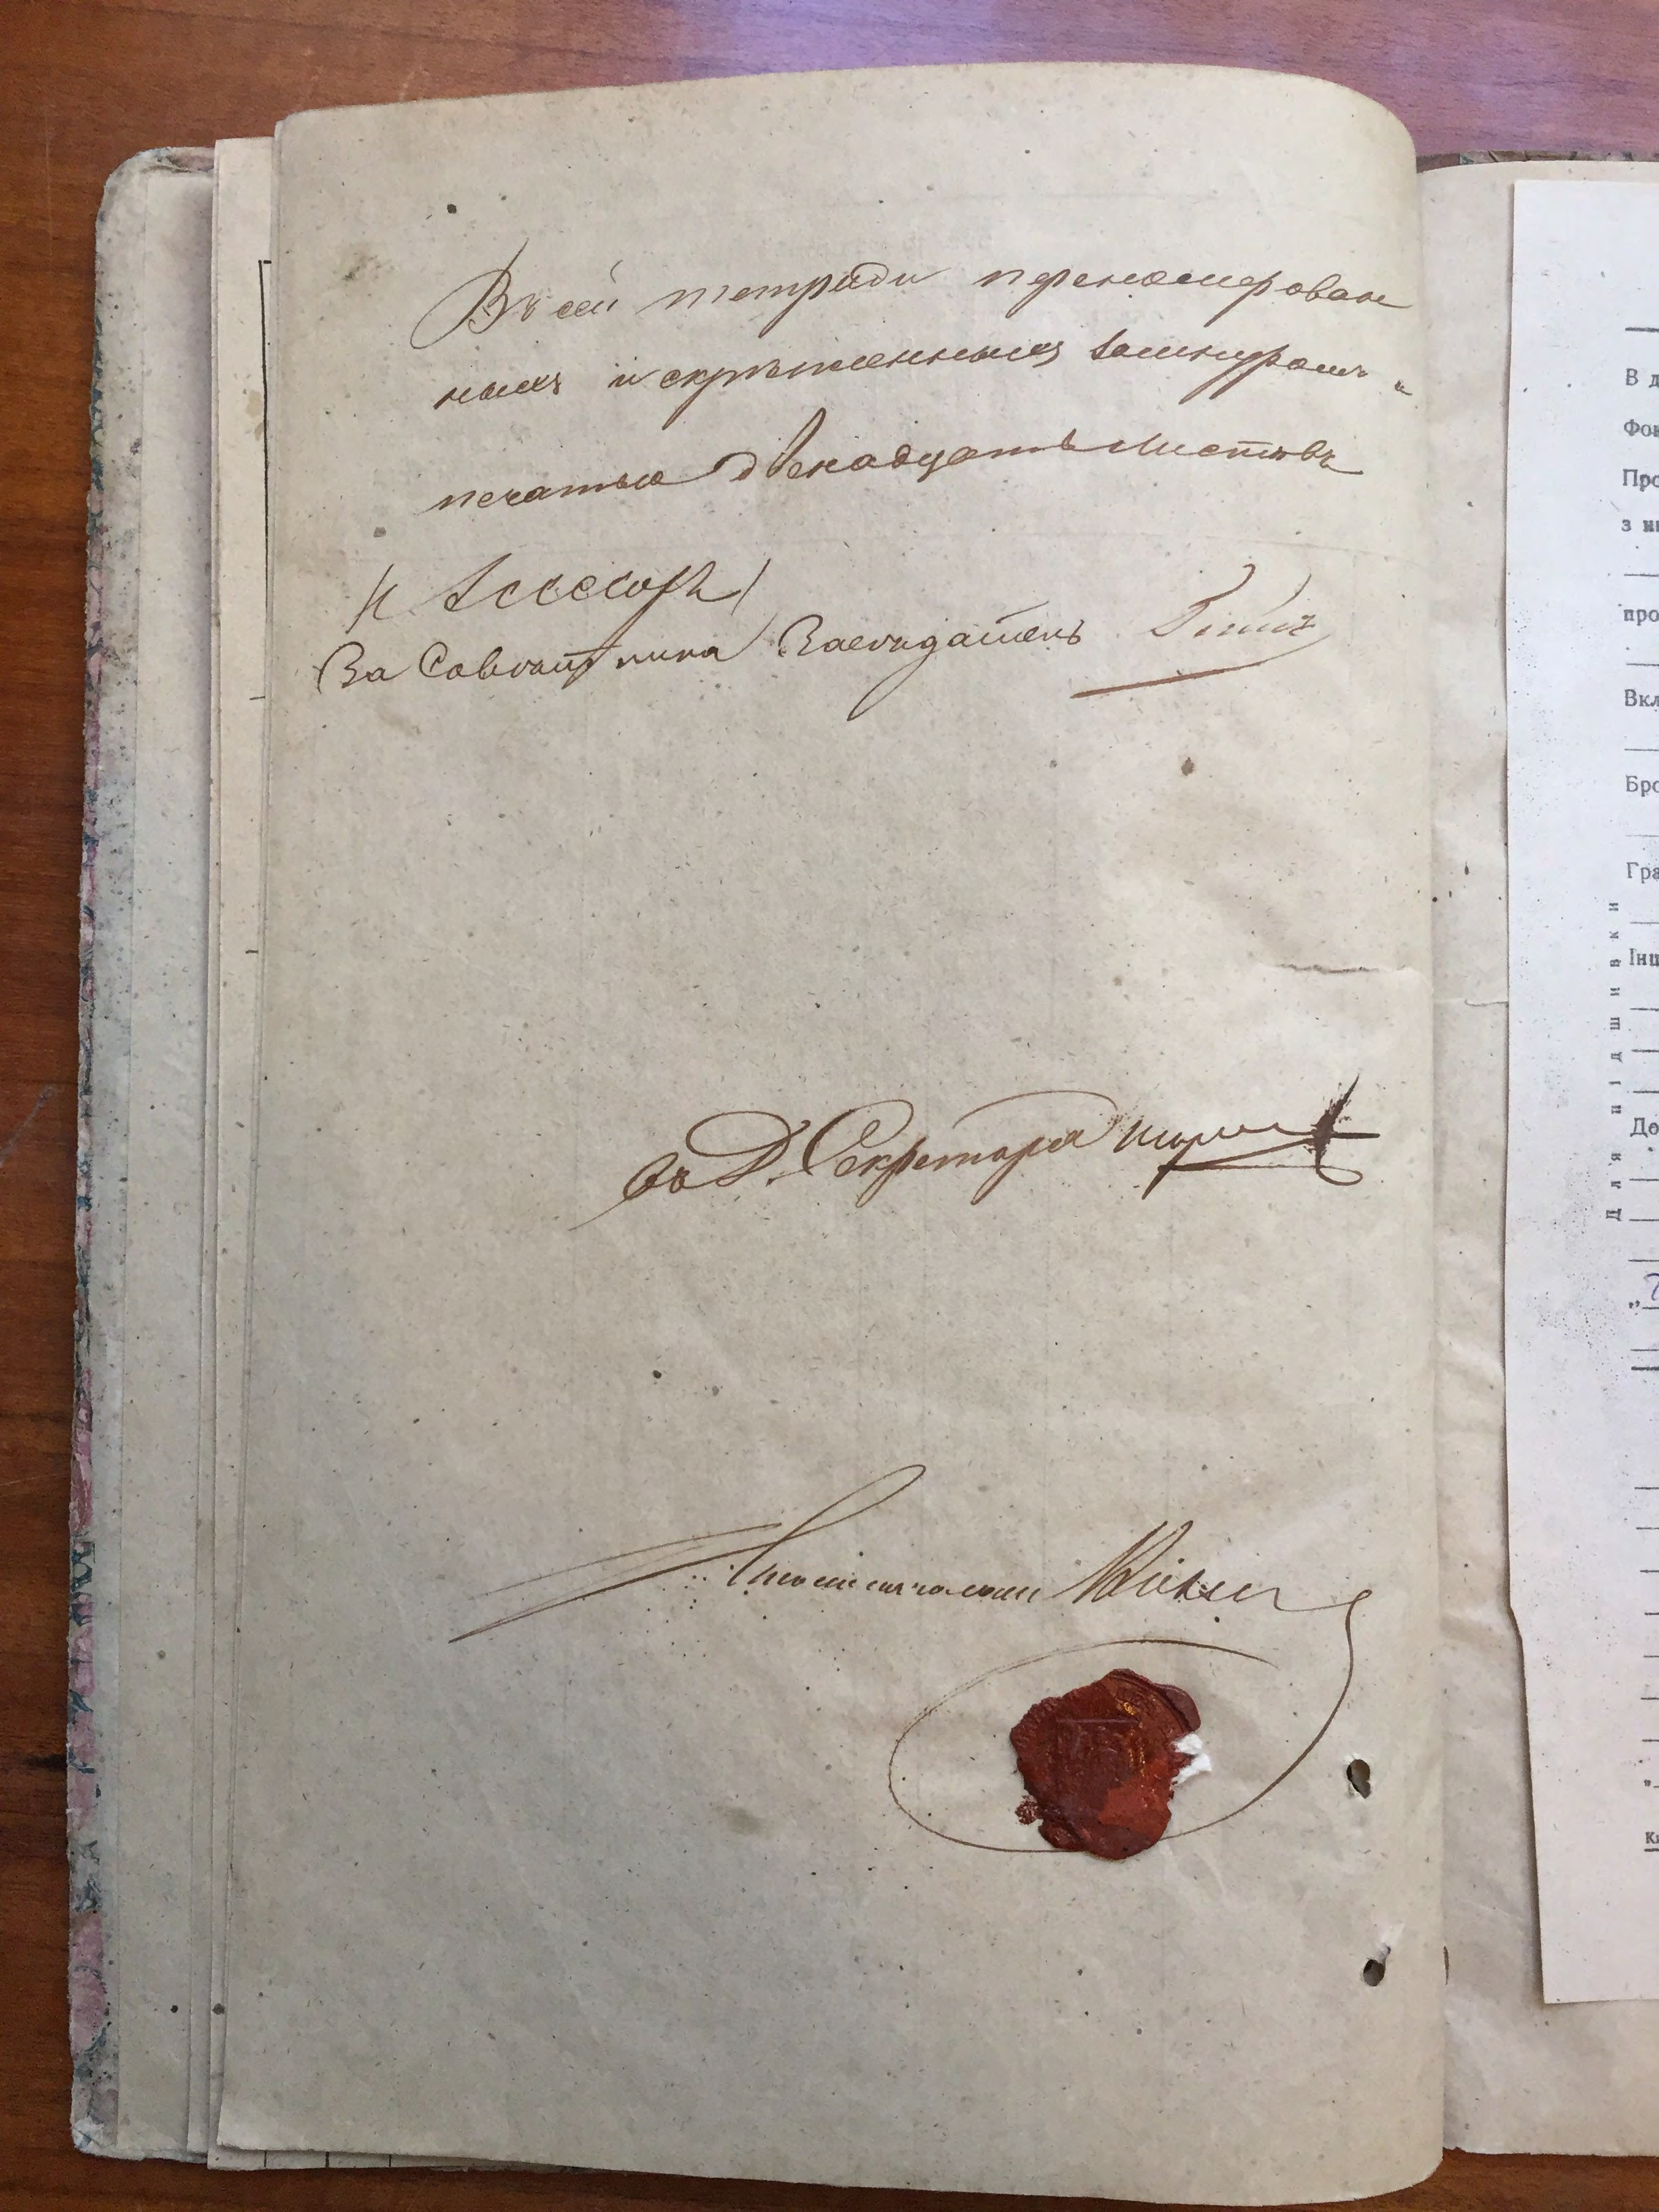 Въ сей тетради перенумерован
ныхъ и скрѣпленныхъ шнуромъ и
печатью двѣнадцать листовъ
Ассесоръ
За Совѣтника Засѣдатель
въ Д. Секретаря
Столоначальникъ
В д
Фон
Про
з
про
Вкл
Бро
Гра
Інц
До
Для підшивки